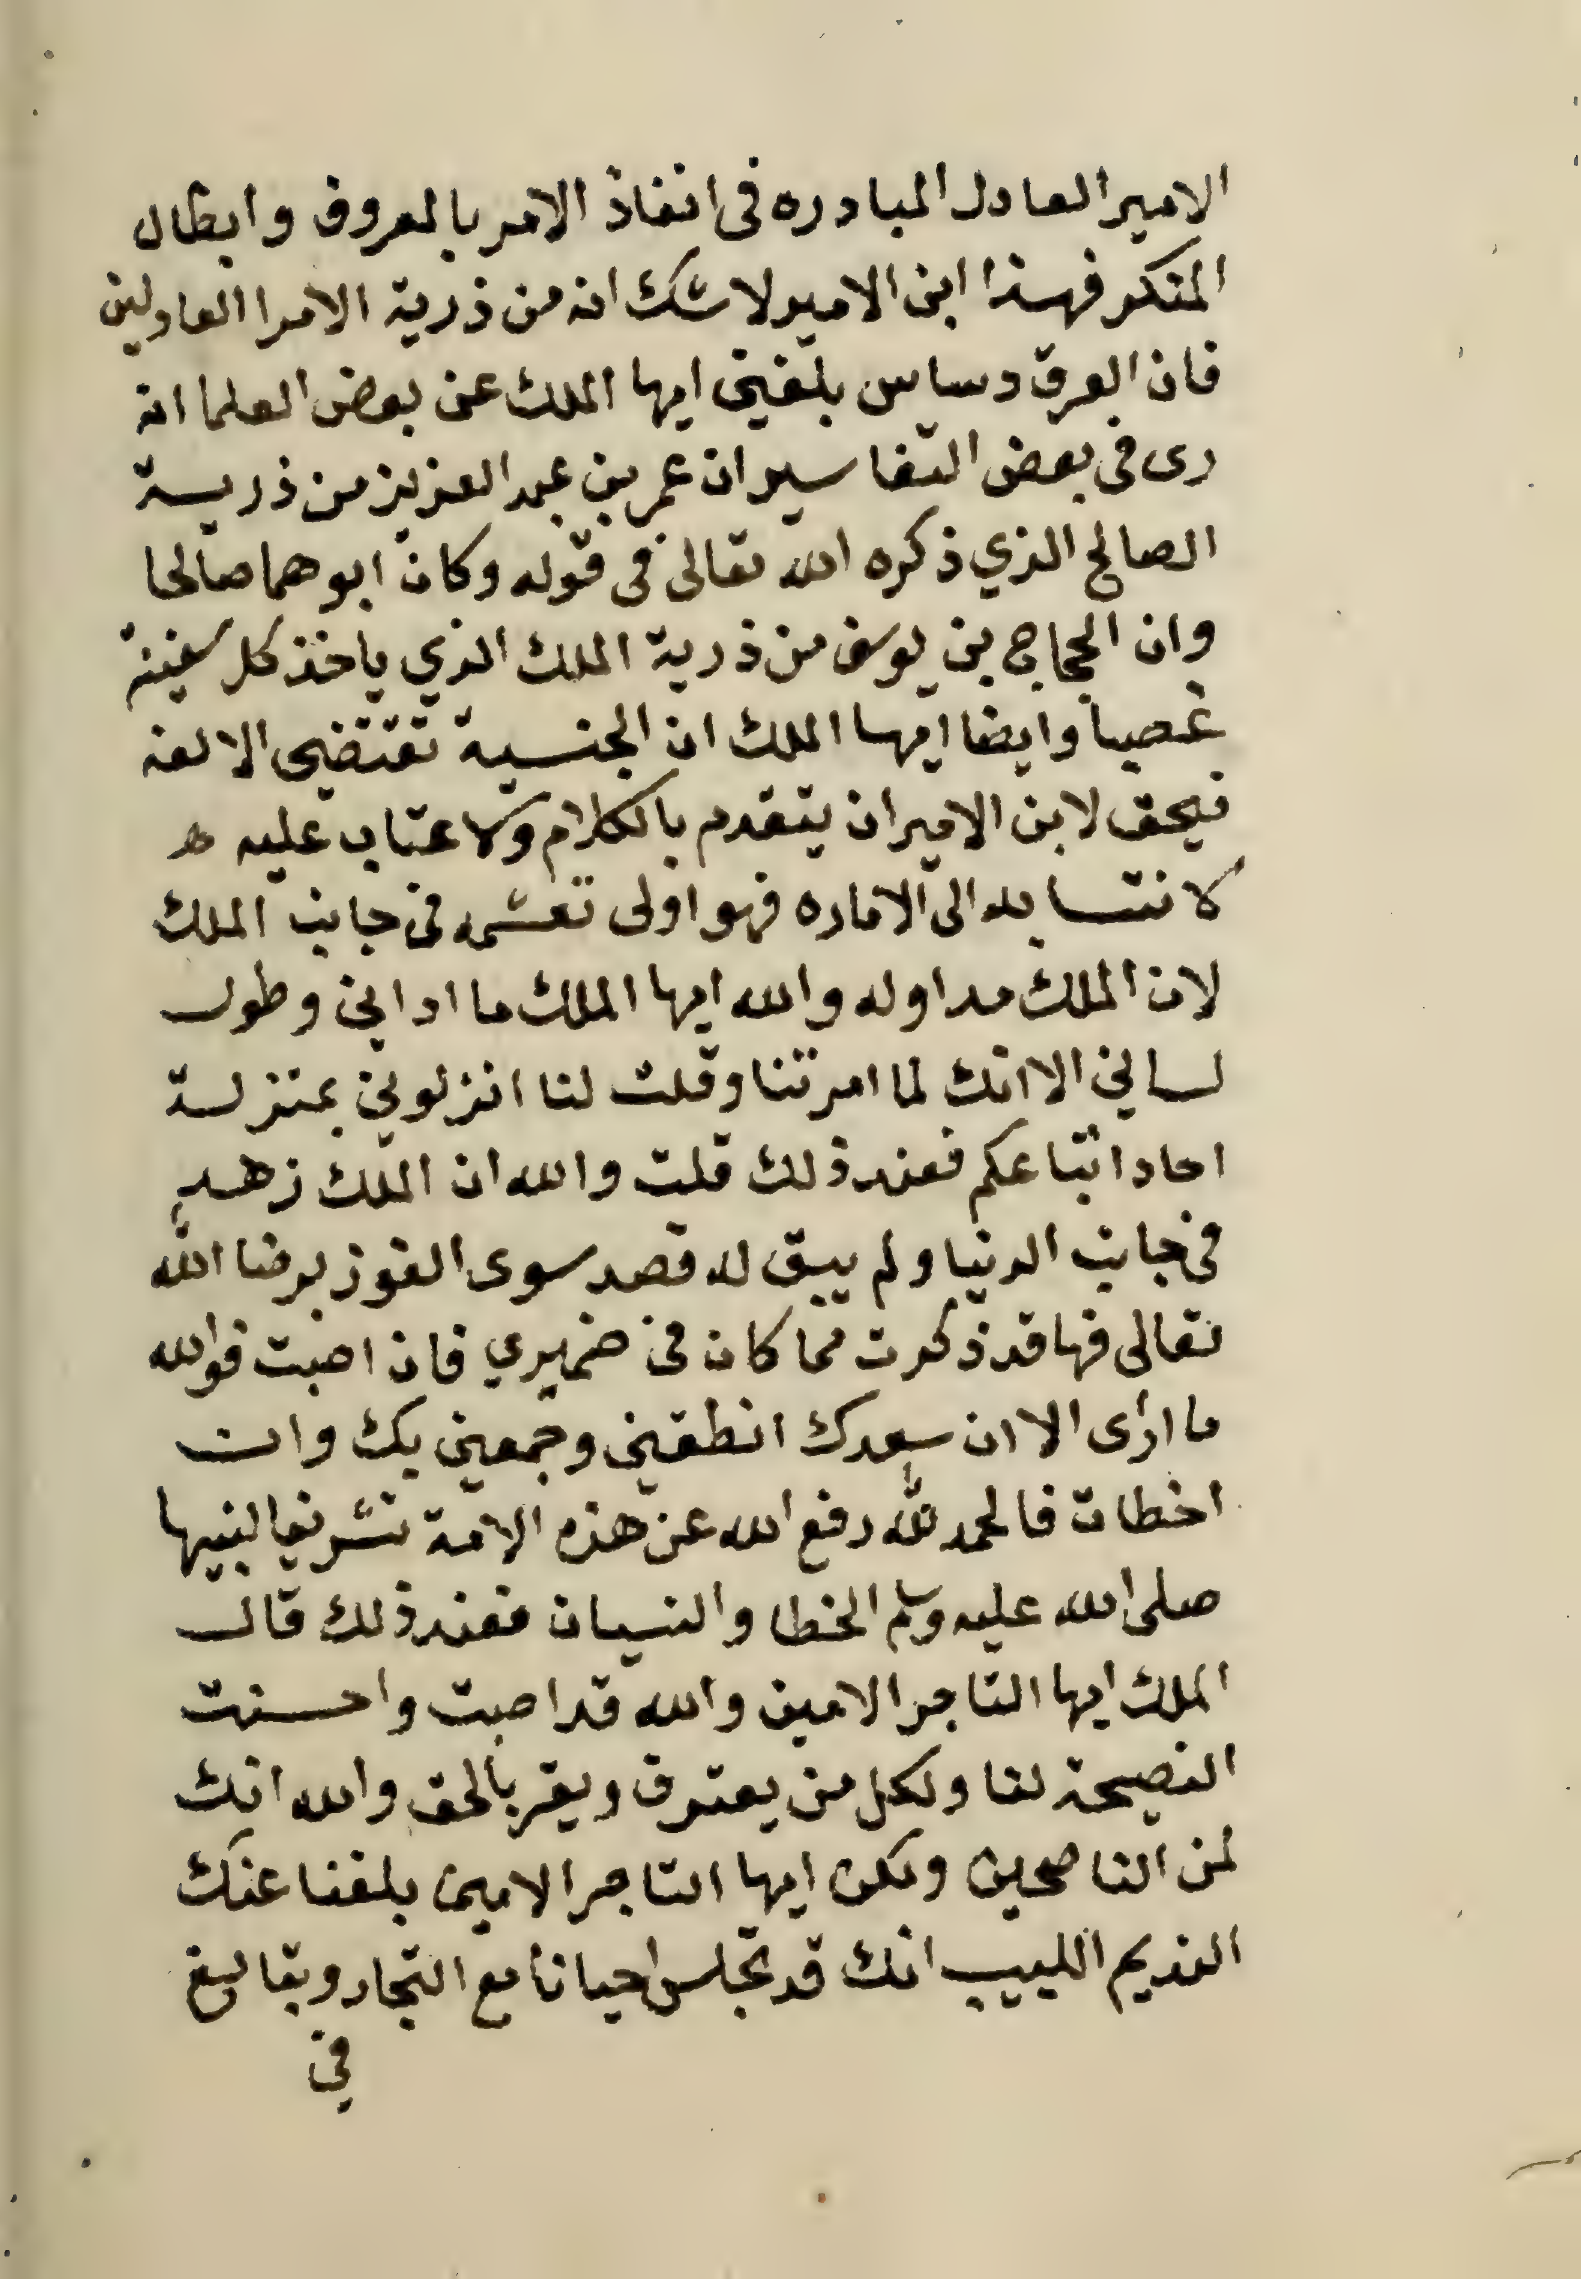 الامير العادل المبادره فى انفاذ الامر بالمعروف وابطال
المنكر فهذا ابن الامير لا شك انه من ذرية الامرا العادلين
فان العرق دساس بلغنى ايها الملك عن بعض العلما انه
رى فى بعض التفاسير ان عمر بن عبد العزيز من ذرية
الصالح الذي ذكره الله تعالى فى قوله وكان ابوهما صالحا
وان الحجاج بن يوسف من ذرية الملك الذي ياخذ كل سفينة
غصبا وايضا ايها الملك ان الجنسية تقتضى الالفه
فيحق لابن الامير ان يتقدم بالكلام ولا عتاب عليه
لانتسابه الى الاماره فهو اولى فى جانب الملك
لان الملك مداوله والله ايها الملك ما ادانى وطول
لسانى الا انك لما امرتنا وقلت لنا انزلونى بمنزلة
احاد اتباعكم فعند ذلك قلت والله ان الملك زهد
فى جانب الدنيا ولم يبق له قصد سوى الفوز برضا الله
تعالى فها قد ذكرت مما كان فى ضميري فان اصبت فوالله
ما ارى الا ان سعدك انطقنى وجمعنى بك وان
اخطات فالحمد لله رفع الله عن هذه الامة تشريفا لنبيها
صلى الله عليه وسلم الخطا والنسيان فعند ذلك قال
الملك ايها التاجر الامين والله قد اصبت واحسنت
النصيحة لنا ولكل من يعترف ويقر بالحق والله انك
لمن الناصحين ولكن ايها التاجر الامين بلغنا عنك
النديم اللبيب انك قد تجلس احيانا مع التجار وتبالغ
فى